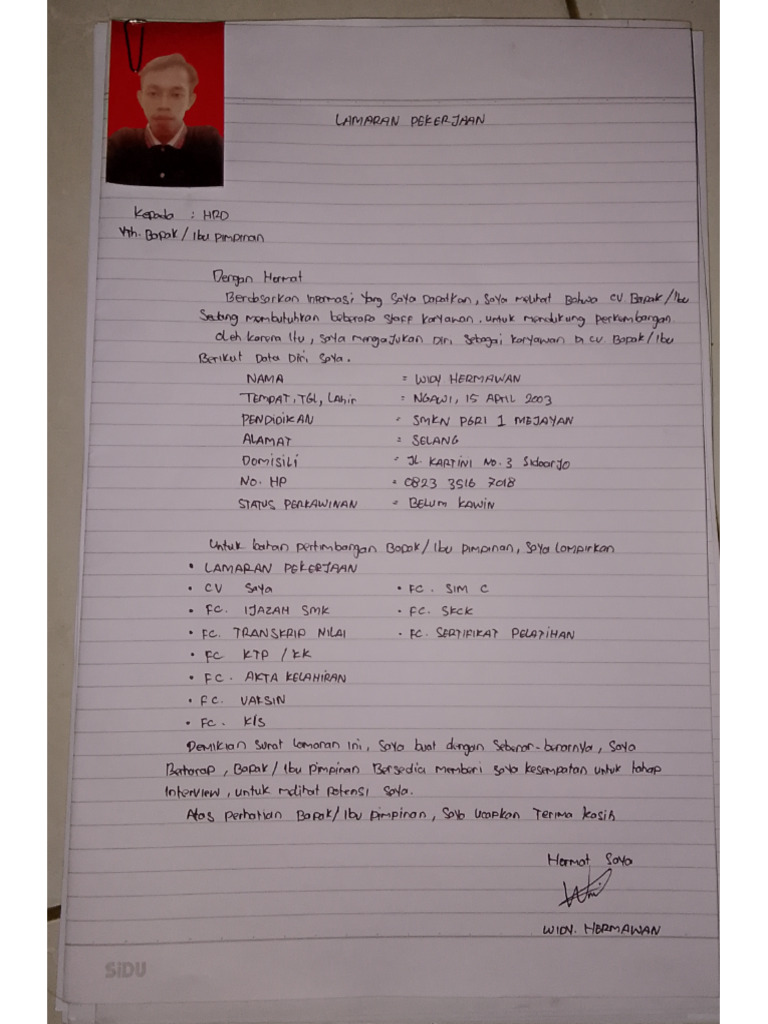 LAMARAN PEKERJAAN
Kepada : HRD
Yth. Bapak / Ibu Pimpinan
Dengan Hormat
Berdasarkan Informasi Yang Saya Dapatkan, Saya melihat Bahwa CV. Bapak / Ibu
Sedang membutuhkan beberapa Staff Karyawan. untuk mendukung perkembangan.
oleh karena Itu, Saya mengajukan Diri Sebagai Karyawan Di CV. Bapak / Ibu
Berikut Data Diri Saya.
NAMA = WIDY HERMAWAN
TEMPAT, TGL, Lahir = NGAWI, 15 APRIL 2003
PENDIDIKAN = SMKN PGRI 1 MEJAYAN
ALAMAT = SELANG
Domisili = JL. KARTINI No. 3 Sidoarjo
No. HP = 0823 3516 7018
STATUS PERKAWINAN = BELUM KAWIN
Untuk bahan pertimbangan Bapak / Ibu pimpinan, Saya Lampirkan
• LAMARAN PEKERJAAN
• CV Saya • FC. SIM C
• FC. IJAZAH SMK • FC. SKCK
• FC. TRANSKRIP NILAI • FC. SERTIFIKAT PELATIHAN
• FC KTP / KK
• FC. AKTA KELAHIRAN
• FC. VAKSIN
• FC. KIS
Demikian Surat Lamaran Ini, Saya buat dengan Sebenar-benarnya, Saya
Berharap, Bapak / Ibu pimpinan Bersedia memberi saya kesempatan untuk tahap
Interview, untuk melihat potensi Saya.
Atas Perhatian Bapak / Ibu Pimpinan, Saya Ucapkan Terima Kasih
Hormat Saya
WIDY. HERMAWAN
SiDU